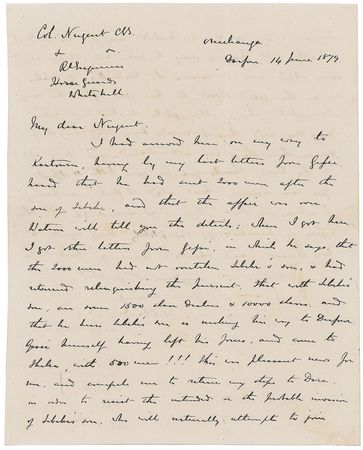 Col. Nugent CB.
R. Engineers
Horse Guards
Whitehall
Oomchanga
Darfour 14 June 1879
My dear Nugent.
I had arrived here on my way to
Kartoum, having by my last letters from Gessi
heard that he had sent 2000 men after the
son of Sebehr, and that the affair was over.
Watson will tell you the details; when I got here
I got other letters from Gessi, in which he says that
the 2000 men had not overtaken Sebehr's son, & had
returned relinquishing the pursuit. That with Sebehr's
son, are some 1500 slave dealers & 10000 slaves, and
that he hears Sebehr's son is making his way to Darfour,
Gessi himself having left his forces, and come to
Shaka, with 500 men!!! This was pleasant news for
me, and compels me to retrace my steps to Dara
in order to resist the intended or the probable invasion
of Sebehr's son, who will naturally attempt to join